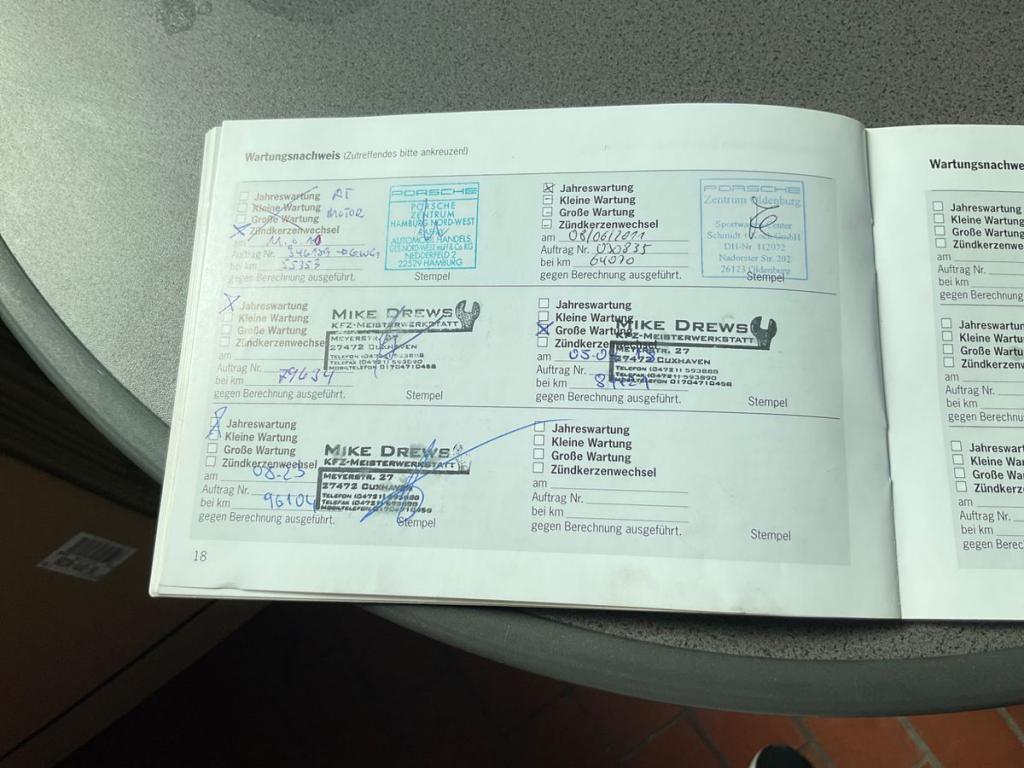 Wartungsnachweis (Zutreffendes bitte ankreuzen!)
Jahreswartung AT
Kleine Wartung
Große Wartung MOTOR
Zündkerzenwechsel
am
Auftrag Nr.
bei km 55353
gegen Berechnung ausgeführt.
PORSCHE
PORSCHE
ZENTRUM
HAMBURG NORD-WEST
AUTOMOBILHANDELS
GES. NORD-WEST mbH & Co. KG
NEDDERFELD 2
22529 HAMBURG
Stempel
Jahreswartung
Kleine Wartung
Große Wartung
Zündkerzenwechsel
am 08/06/2011
Auftrag Nr.
bei km 64070
gegen Berechnung ausgeführt.
PORSCHE
Zentrum Oldenburg
Schmidt + Koch GmbH
DH-Nr. 112072
Nadorster Str. 202
26123 Oldenburg
Stempel
Jahreswartung
Kleine Wartung
Große Wartung
Zündkerzenwechsel
am
Auftrag Nr.
bei km 79434
gegen Berechnung ausgeführt.
MIKE DREWS
KFZ-MEISTERWERKSTATT
MEYERSTR. 27
27472 CUXHAVEN
TELEFON (04721) 593888
TELEFAX (04721) 593890
MOBILTELEFON 01704710458
Stempel
Jahreswartung
Kleine Wartung
Große Wartung
Zündkerzenwechsel
am
Auftrag Nr.
bei km
gegen Berechnung ausgeführt.
MIKE DREWS
KFZ-MEISTERWERKSTATT
MEYERSTR. 27
27472 CUXHAVEN
TELEFON (04721) 593888
TELEFAX (04721) 593890
MOBILTELEFON 01704710458
Stempel
Jahreswartung
Kleine Wartung
Große Wartung
Zündkerzenwechsel
am 08-23
Auftrag Nr.
bei km 96104
gegen Berechnung ausgeführt.
MIKE DREWS
KFZ-MEISTERWERKSTATT
MEYERSTR. 27
27472 CUXHAVEN
TELEFON (04721) 593888
TELEFAX (04721) 593890
MOBILTELEFON 01704710458
Stempel
Jahreswartung
Kleine Wartung
Große Wartung
Zündkerzenwechsel
am
Auftrag Nr.
bei km
gegen Berechnung ausgeführt.
Stempel
18
Jahreswartung
Kleine Wartung
Große Wartung
am
Auftrag Nr.
bei km
gegen
Jahreswartung
Kleine Wartung
Große Wartung
am
Auftrag Nr.
bei km
gegen
Jahreswartung
Kleine Wartung
am
Auftrag Nr.
bei km
gegen